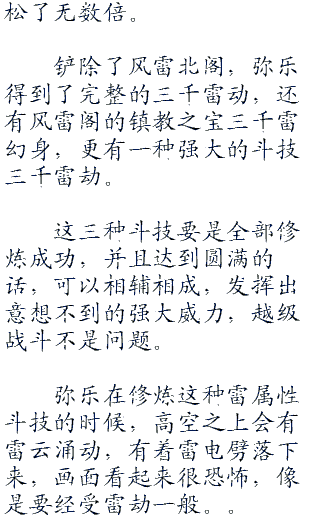 松了无数倍。
铲除了风雷北阁，弥乐
得到了完整的三千雷动，还
有风雷阁的镇教之宝三千雷
幻身，更有一种强大的斗技
三千雷劫。
这三种斗技要是全部修
炼成功，并且达到圆满的
话，可以相辅相成，发挥出
意想不到的强大威力，越级
战斗不是问题。
弥乐在修炼这种雷属性
斗技的时候，高空之上会有
雷云涌动，有着雷电劈落下
来，画面看起来很恐怖，像
是要经受雷劫一般。。